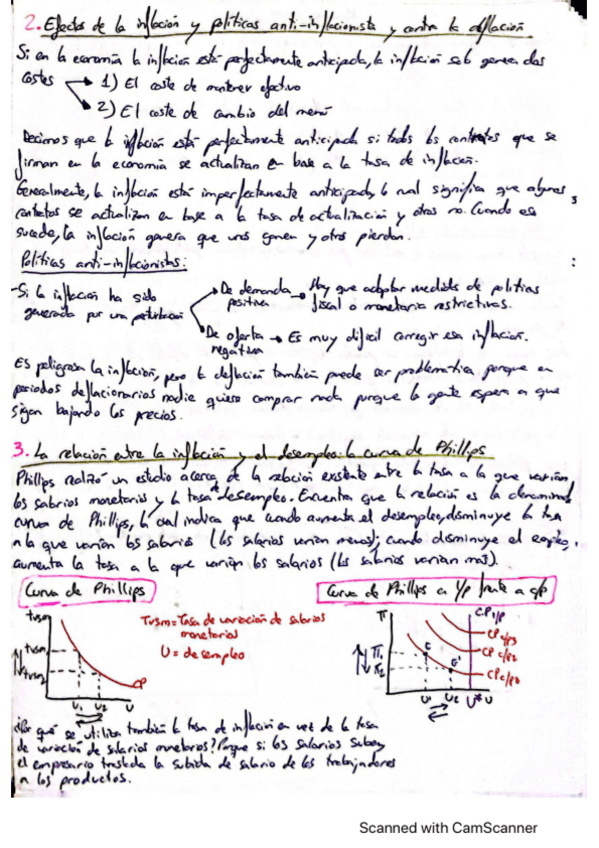 2. Efectos de la inflación y políticas anti-inflacionista y contra la deflación
Si en la economía la inflación está perfectamente anticipada, la inflación solo genera dos
costes → 1) El coste de mantener efectivo
→ 2) El coste de cambio del menú
Decimos que la inflación está perfectamente anticipada si todos los contratos que se
firman en la economía se actualizan en base a la tasa de inflación.
Generalmente, la inflación está imperfectamente anticipada, lo cual significa que algunos
contratos se actualizan en base a la tasa de actualización y otros no. Cuando eso
sucede, la inflación genera que unos ganen y otros pierdan.
Políticas anti-inflacionistas:
- Si la inflación ha sido generada por una perturbación
→ De demanda positiva → Hay que adoptar medidas de políticas fiscal o monetaria restrictivas.
→ De oferta negativa → Es muy difícil corregir esa inflación.
Es peligrosa la inflación, pero la deflación también puede ser problemática, porque en
periodos deflacionarios nadie quiere comprar nada porque la gente espera a que
sigan bajando los precios.
3. La relación entre la inflación y el desempleo: la curva de Phillips
Phillips realizó un estudio acerca de la relación existente entre la tasa a la que varían
los salarios monetarios y la tasa desempleo. Encuentra que la relación es la denominada
curva de Phillips, la cual indica que cuando aumenta el desempleo, disminuye la tasa
a la que varían los salarios (los salarios varían menos); cuando disminuye el empleo,
aumenta la tasa a la que varían los salarios (los salarios varían más).
Curva de Phillips
tvsm
tvsm1
tvsm2
CP
U1 U2 U
Tvsm = Tasa de variación de salarios
monetarios
U = desempleo
Curva de Phillips a l/p frente a c/p
π
π1
π2
C
G'
CP l/p
CP c/p3
CP c/p2
U1 U2 U* U
¿Por qué se utiliza también la tasa de inflación en vez de la tasa
de variación de salarios monetarios? Porque si los salarios suben,
el empresario traslada la subida de salario de los trabajadores
a los productos.
Scanned with CamScanner